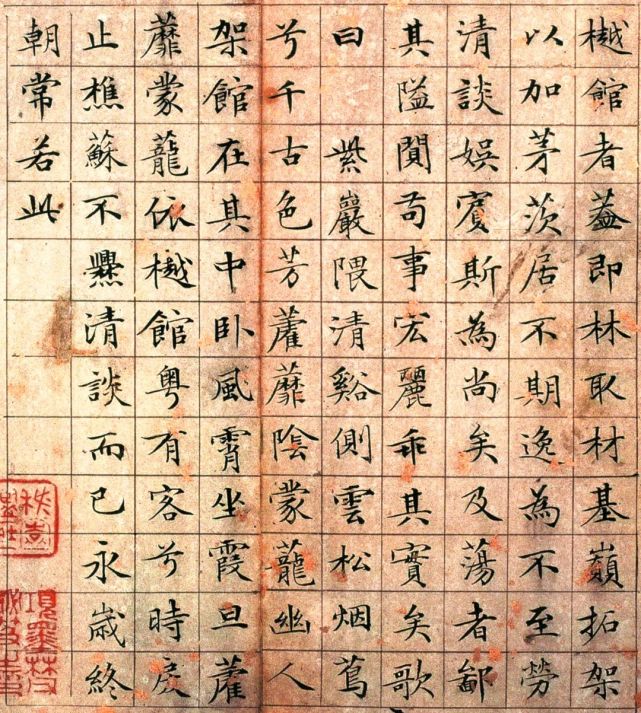 樾館者葢即林取材基巔拓架
以加茅茨居不期逸為不至勞
清談娛賓斯為尚矣及蕩者鄙
其隘闃苟事宏麗乖其實矣歌
曰 紫巖隈清谿側雲松烟蔦
兮千古色芳藋蘼陰蒙蘢幽人
架館在其中臥風霄坐霞旦藋
蘼蒙蘢依樾館粵有客兮時戾
止樵蘇不爨清談而已永歲終
朝常若此